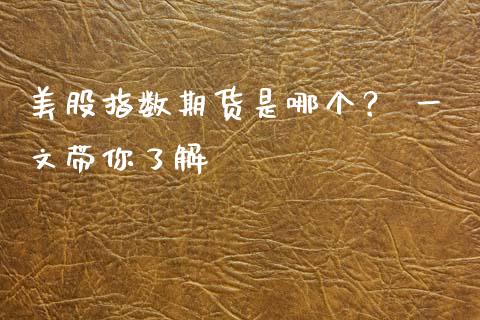 美股指数期货是哪个？ 一
文带你了解